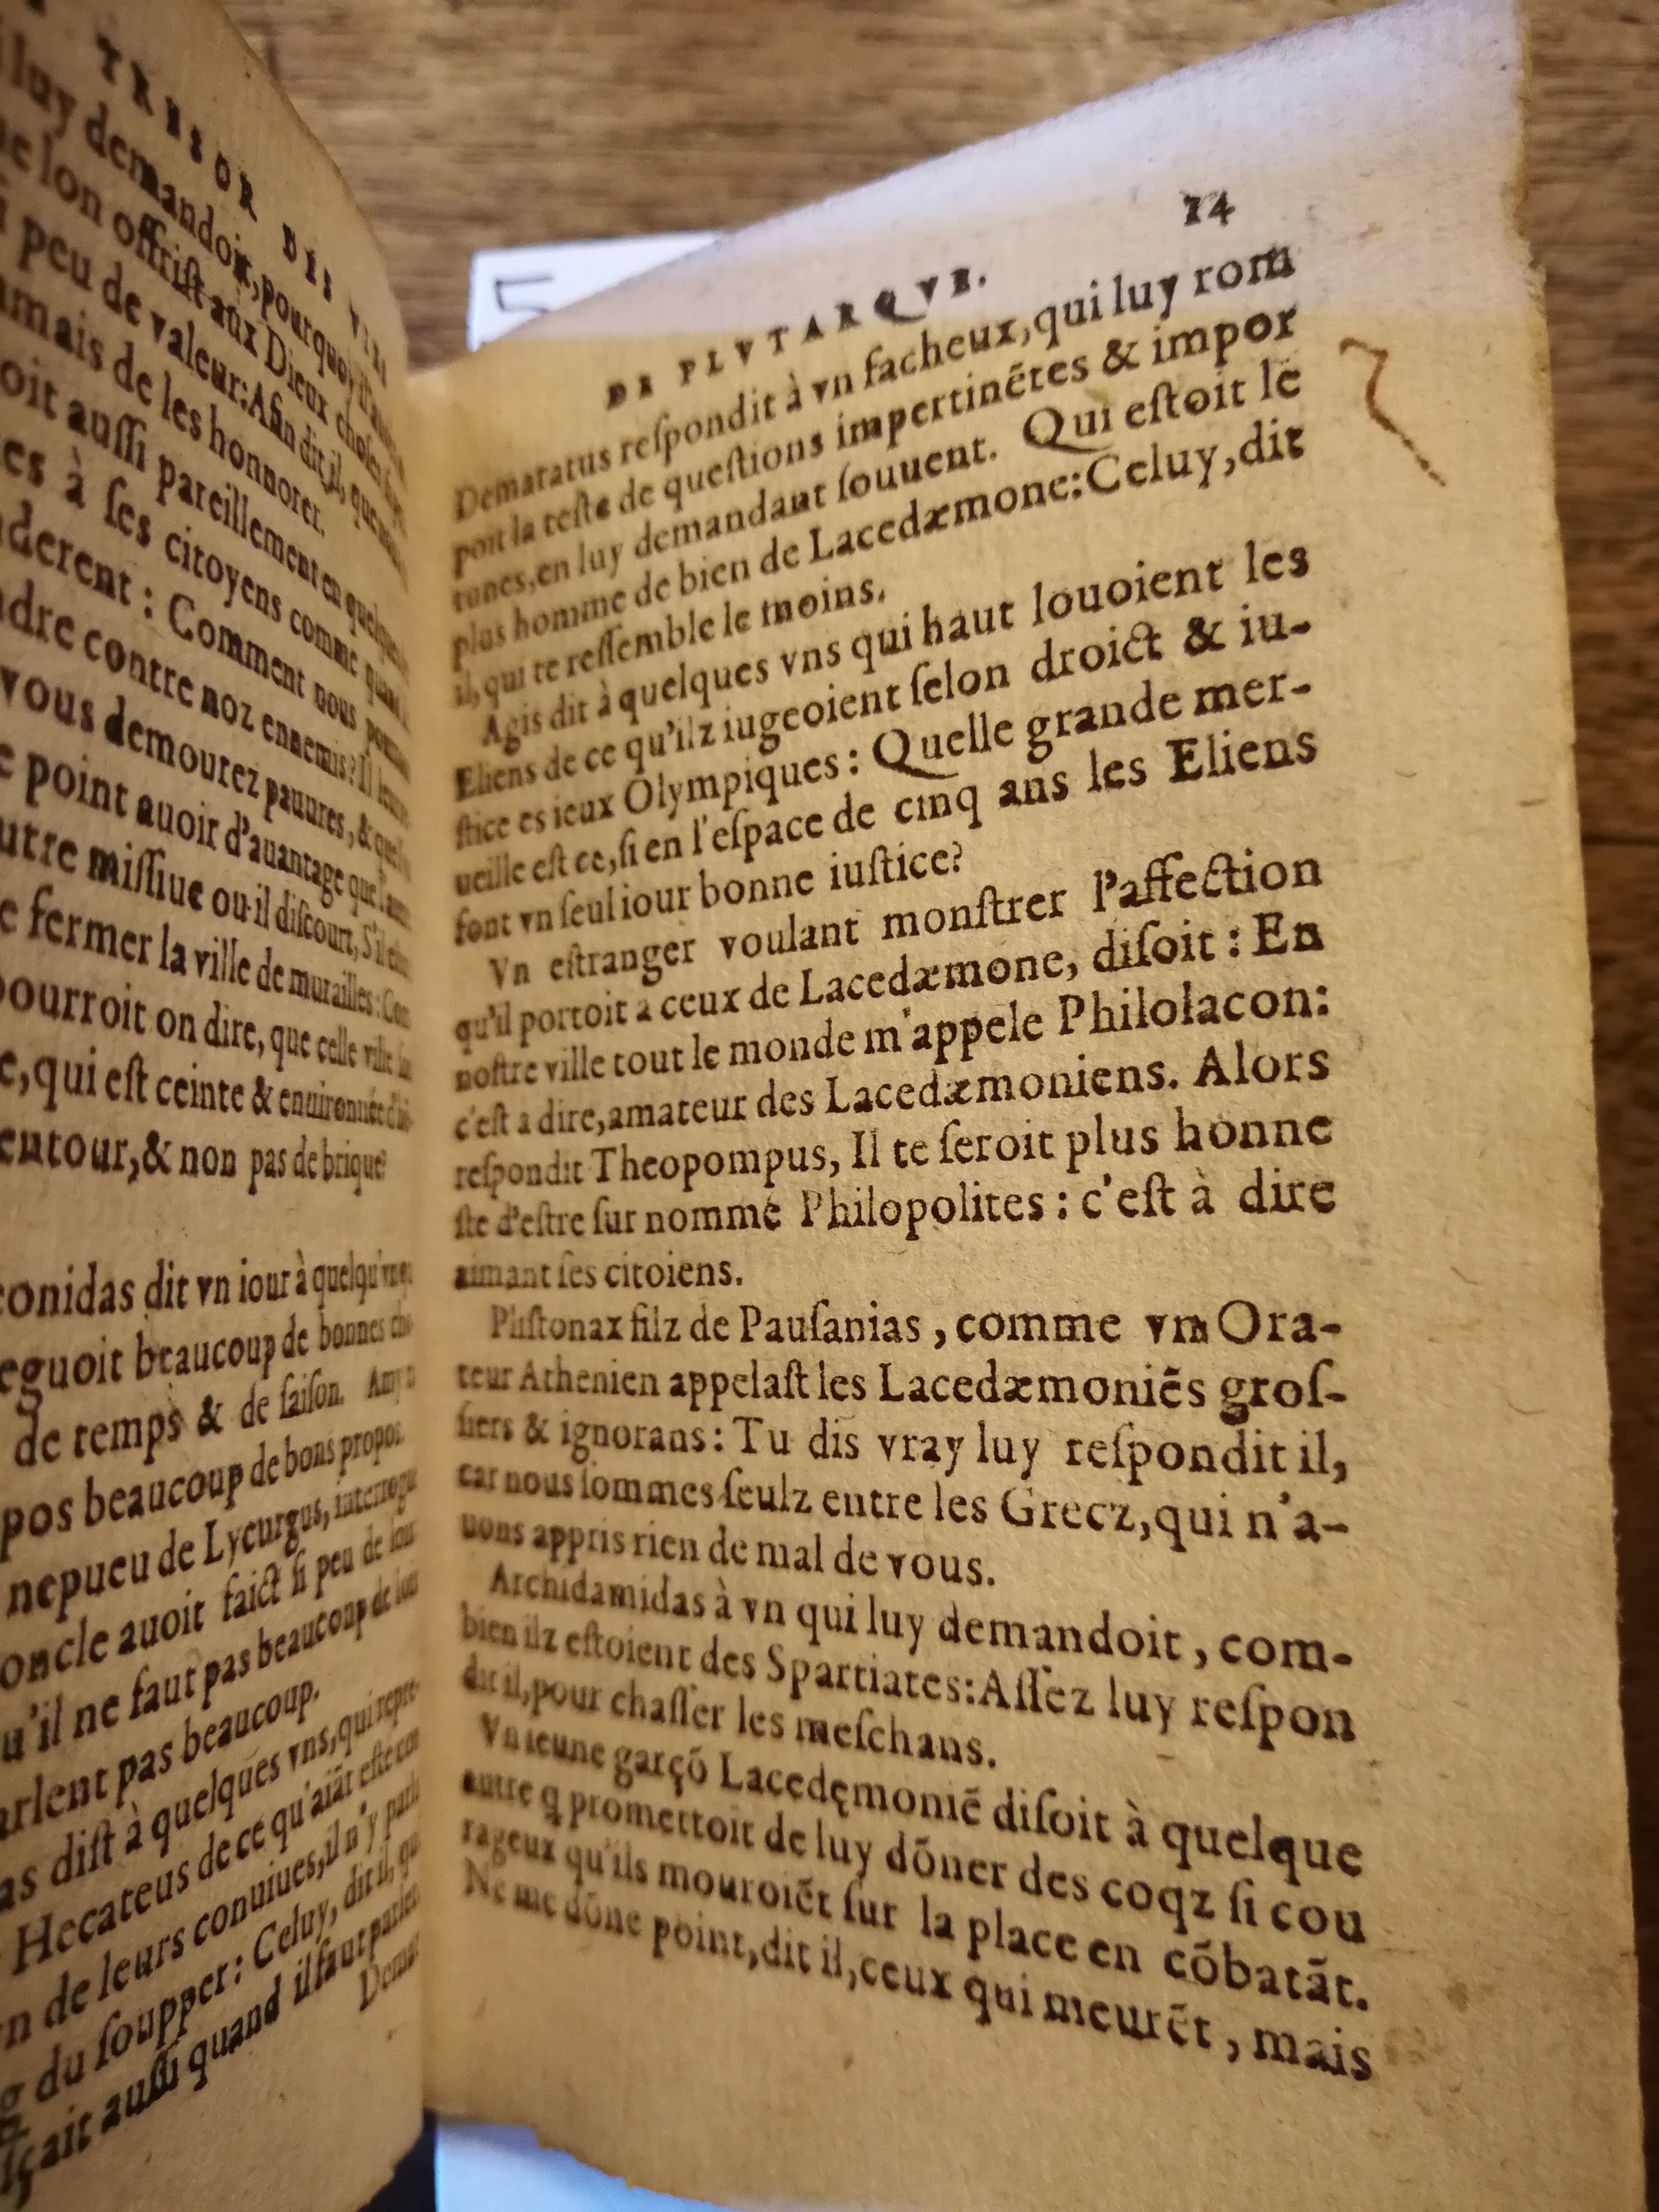 TRESOR DES VIES
luy demandoit, pourquoy
lon offrist aux Dieux choses
peu de valeur: Afin dit il, que
de les honnorer.
aussi pareillement en
à ses citoyens comme
: Comment nous
contre noz ennemis? Il
vous demourez pauures, &
point auoir d'auantage que
missiue ou il discourt, S'il
fermer la ville de murailles:
pourroit on dire, que celle ville
qui est ceinte & enuironnée
entour, & non pas de brique?
dit vn iour à
beaucoup de bonnes
de temps & de saison.
beaucoup de bons propos.
nepueu de Lycurgus,
oncle auoit faict si peu de
qu'il ne faut pas beaucoup de
pas beaucoup.
dist à quelques vns, qui
Hecateus de ce qu'aiāt esté
de leurs conuiues, il n'y
du soupper: Celuy, dit il, qui
aussi quand il faut parler.
DE PLVTARQVE.
24
Demaratus respondit à vn facheux, qui luy rom
poit la teste de questions impertinētes & impor
tunes, en luy demandant souuent. Qui estoit le
plus homme de bien de Lacedæmone: Celuy, dit
il, qui te ressemble le moins.
Agis dit à quelques vns qui haut louoient les
Eliens de ce qu'ilz iugeoient selon droict & iu-
stice es ieux Olympiques: Quelle grande mer-
ueille est ce, si en l'espace de cinq ans les Eliens
font vn seul iour bonne iustice?
Vn estranger voulant monstrer l'affection
qu'il portoit a ceux de Lacedæmone, disoit: En
nostre ville tout le monde m'appele Philolacon:
c'est a dire, amateur des Lacedæmoniens. Alors
respondit Theopompus, Il te seroit plus honne
ste d'estre sur nommé Philopolites: c'est à dire
aimant ses citoiens.
Plistonax filz de Pausanias, comme vn Ora-
teur Athenien appelast les Lacedæmoniēs gros-
siers & ignorans: Tu dis vray luy respondit il,
car nous sommes seulz entre les Grecz, qui n'a-
uons appris rien de mal de vous.
Archidamidas à vn qui luy demandoit, com-
bien ilz estoient des Spartiates: Assez luy respon
dit il, pour chasser les meschans.
Vn ieune garçō Lacedęmoniē disoit à quelque
autre q promettoit de luy dōner des coqz si cou
rageux qu'ils mouroiēt sur la place en cōbatāt.
Ne me dōne point, dit il, ceux qui meurēt, mais